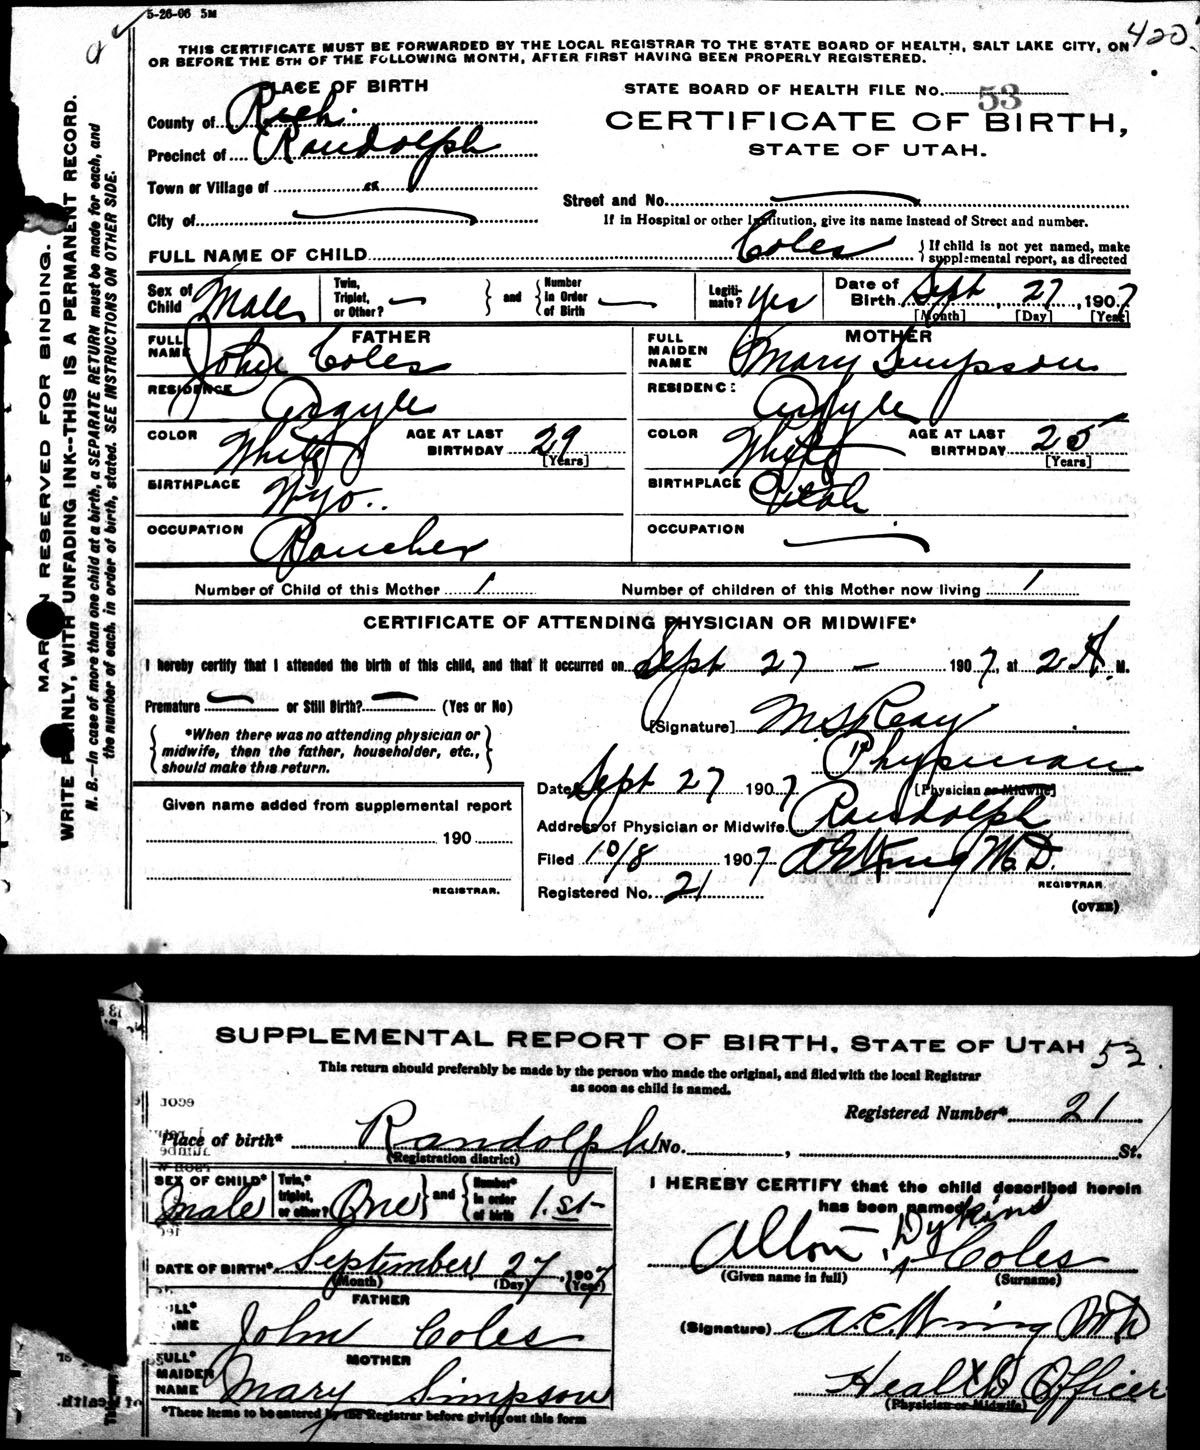 5-26-06 5M
420.
THIS CERTIFICATE MUST BE FORWARDED BY THE LOCAL REGISTRAR TO THE STATE BOARD OF HEALTH, SALT LAKE CITY, ON
OR BEFORE THE 5TH OF THE FOLLOWING MONTH, AFTER FIRST HAVING BEEN PROPERLY REGISTERED.
MARGIN RESERVED FOR BINDING.
WRITE PLAINLY, WITH UNFADING INK--THIS IS A PERMANENT RECORD.
N. B.—In case of more than one child at a birth, a SEPARATE RETURN must be made for each, and
the number of each, in order of birth, stated. SEE INSTRUCTIONS ON OTHER SIDE.
PLACE OF BIRTH
STATE BOARD OF HEALTH FILE No. 53
County of Rich.
CERTIFICATE OF BIRTH,
Precinct of Randolph
STATE OF UTAH.
Town or Village of
Street and No.
City of
If in Hospital or other Institution, give its name instead of Street and number.
FULL NAME OF CHILD Coles { If child is not yet named, make
supplemental report, as directed
Sex of Child Male Twin, Triplet, or Other? — } and { Number in Order of Birth — Legiti-mate? Yes Date of Birth Sept, 27, 1907
[Month] [Day] [Year]
FATHER MOTHER
FULL NAME John Coles FULL MAIDEN NAME Mary Simpson
RESIDENCE Argyle RESIDENCE Argyle
COLOR White AGE AT LAST BIRTHDAY 29 [Years] COLOR White AGE AT LAST BIRTHDAY 25 [Years]
BIRTHPLACE Wyo.. BIRTHPLACE Utah
OCCUPATION Rancher OCCUPATION —
Number of Child of this Mother 1 Number of children of this Mother now living 1
CERTIFICATE OF ATTENDING PHYSICIAN OR MIDWIFE*
I hereby certify that I attended the birth of this child, and that it occurred on Sept 27 — 1907, at 2 A. M.
Premature — or Still Birth? — (Yes or No)
[Signature] M. S. Reay
*When there was no attending physician or
midwife, then the father, householder, etc.,
should make this return.
Physician
[Physician or Midwife]
Date Sept 27 1907
Given name added from supplemental report
Address of Physician or Midwife Randolph
190
Filed 10/8 1907 A E Wing M. D.
REGISTRAR. REGISTRAR
Registered No. 21
(OVER)
SUPPLEMENTAL REPORT OF BIRTH, STATE OF UTAH 53.
This return should preferably be made by the person who made the original, and filed with the local Registrar
as soon as child is named.
Registered Number* 21
Place of birth* Randolph No. , St.
(Registration district)
SEX OF CHILD* Male Twin,* triplet, or other? One } and { Number* in order of birth 1.st-
I HEREBY CERTIFY that the child described herein
has been named
Dykins
Alton, Coles
(Given name in full) (Surname)
DATE OF BIRTH* September, 27, 1907
(Month) (Day) (Year)
FATHER
FULL* NAME John Coles
(Signature) A. E. Wing M D
MOTHER
FULL* MAIDEN NAME Mary Simpson
Health Officer
(Physician or Midwife)
*These items to be entered by the Registrar before giving out this form